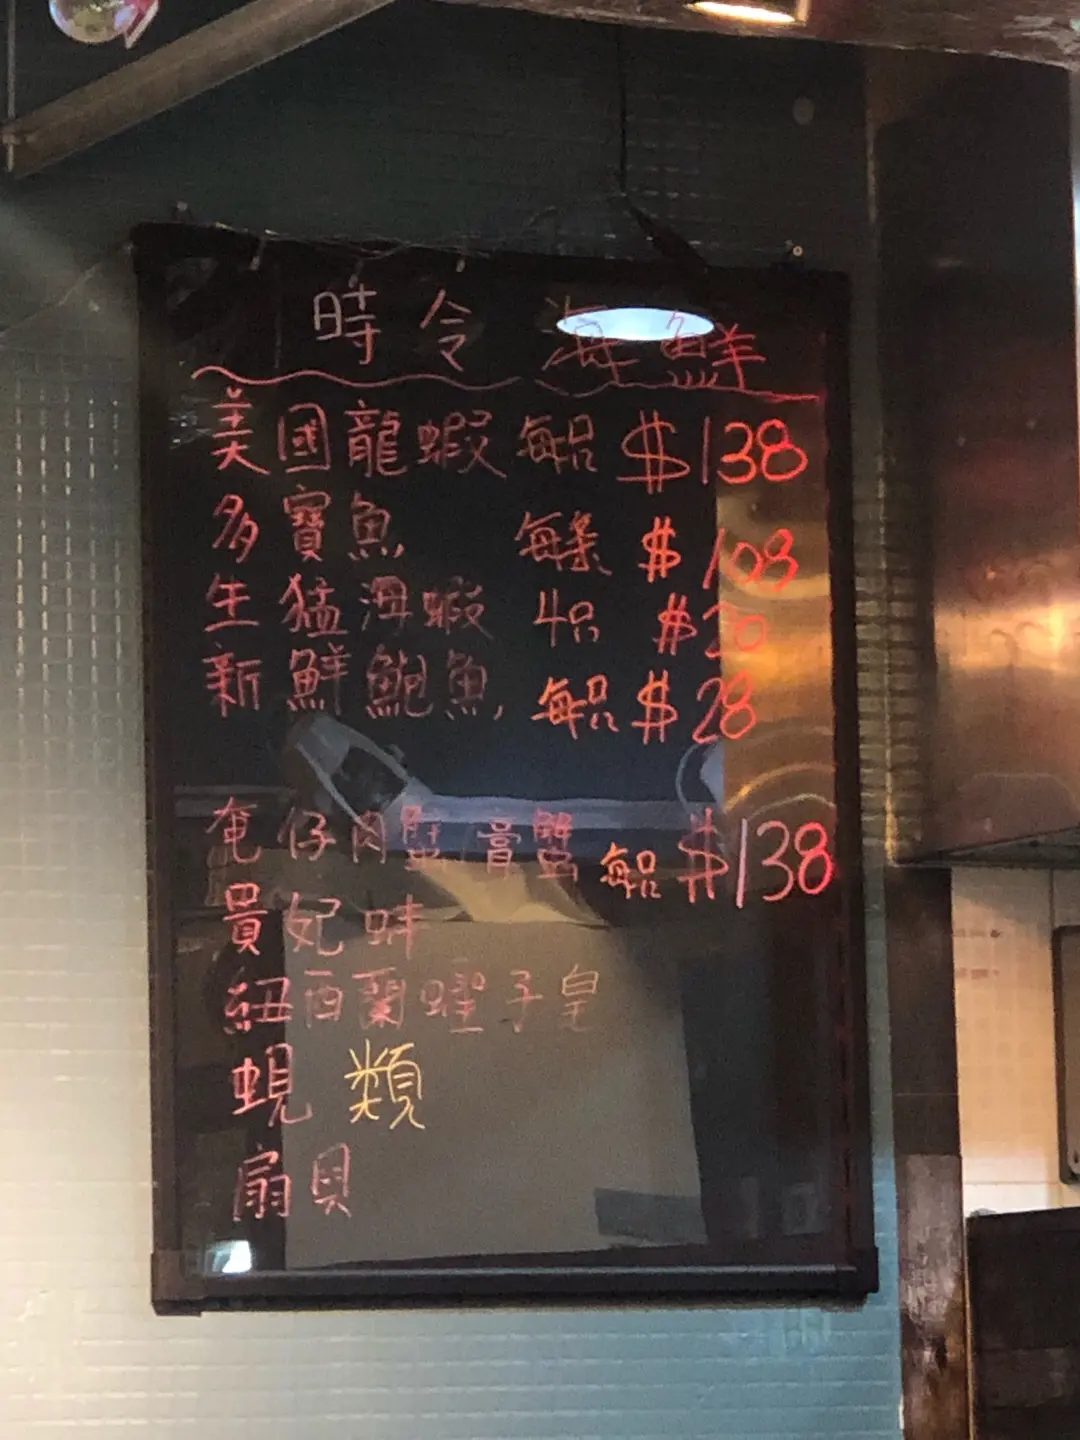 時令海鮮
美國龍蝦 每只 $138
多寶魚 每条 $108
生猛海蝦 4只 $20
新鮮鮑魚 每只 $28
奄仔肉蟹膏蟹 每只 $138
貴妃蚌
紐西蘭蟶子皇
蜆類
扇貝